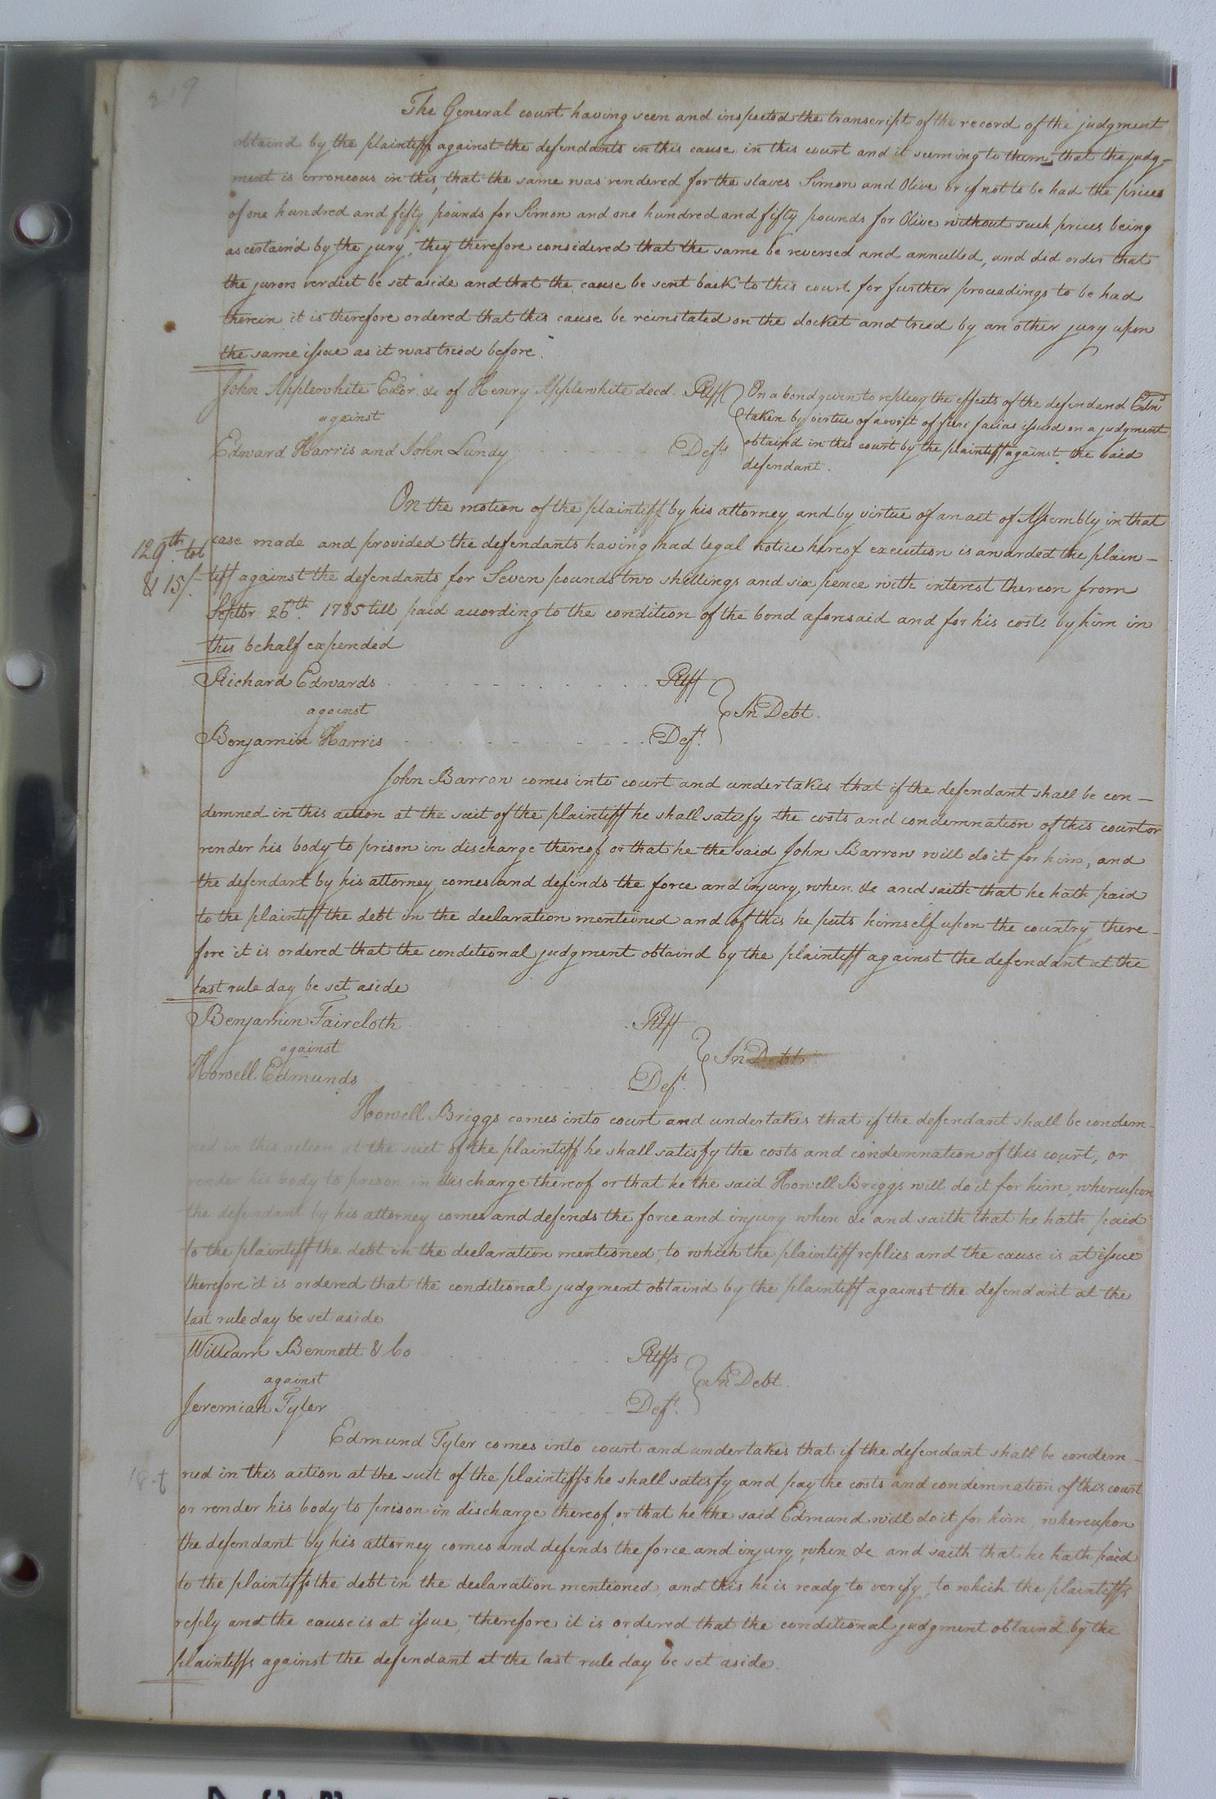 The General court having seen and inspected the transcript of the record of the judgment
obtaind by the plaintiff against the defendants in this cause in this court and it seeming to them that the judg-
ment is erroneous in this, that the same was rendered for the slaves Simon and Olive or if not to be had the prices
of one hundred and fifty pounds for Simon and one hundred and fifty pounds for Olive without such prices being
ascertain'd by the jury, they therefore considered that the same be reversed and annulled, and did order that
the jurors verdict be set aside and that the cause be sent back to this court for further proceedings to be had
therein it is therefore ordered that this cause be reinstated on the docket and tried by an other jury upon
the same issue as it was tried before.
John Applewhite Exor. &c of Henry Applewhite decd. Pltff
against
Edward Harris and John Lundy Defts
On a bond given to replevy the effects of the defendand Edwd
taken by virtue of a writ of fiere facias issued on a judgment
obtaind in this court by the plaintiff against the said
defendant.
On the motion of the plaintiff by his attorney and by virtue of an act of Assembly in that
129th tob
& 15/-
case made and provided the defendants having had legal notice hereof execution is awarded the plain-
tiff against the defendants for Seven pounds two shillings and six pence with interest thereon from
Septbr 26th. 1785 till paid according to the condition of the bond aforesaid and for his costs by him in
this behalf expended
Richard Edwards Pltff
against
In Debt.
Benjamin Harris Deft.
John Barrow comes into court and undertakes that if the defendant shall be con-
demned in this action at the suit of the plaintiff he shall satisfy the costs and condemnation of this court or
render his body to prison in discharge thereof or that he the said John Barrow will do it for him, and
the defendant by his attorney comes and defends the force and injury when &c and saith that he hath paid
to the plaintiff the debt in the declaration mentioned and of this he puts himself upon the country there-
fore it is ordered that the conditional judgment obtaind by the plaintiff against the defendant at the
last rule day be set aside
Benjamin Faircloth Pltff
against
In Debt
Howell Edmunds Deft.
Howell Briggs comes into court and undertakes that if the defendant shall be condem-
ned in this action at the suit of the plaintiff he shall satisfy the costs and condemnation of this court, or
render his body to prison in discharge thereof or that he the said Howell Briggs will do it for him, whereupon
the defendant by his attorney comes and defends the force and injury when &c and saith that he hath paid
to the plaintiff the debt in the declaration mentioned, to which the plaintiff replies and the cause is at issue
therefore it is ordered that the conditional judgment obtaind by the plaintiff against the defendant at the
last rule day be set aside
William Bennett & Co Pltffs
against
In Debt.
Jeremiah Tyler Deft.
Edmund Tyler comes into court and undertakes that if the defendant shall be condem-
ned in this action at the suit of the plaintiffs he shall satisfy and pay the costs and condemnation of this court
or render his body to prison in discharge thereof or that he the said Edmund will do it for him whereupon
the defendant by his attorney comes and defends the force and injury when &c and saith that he hath paid
to the plaintiffs the debt in the declaration mentioned and this he is ready to verify, to which the plaintiffs
reply and the cause is at issue, therefore it is ordered that the conditional judgment obtaind by the
plaintiffs against the defendant at the last rule day be set aside.